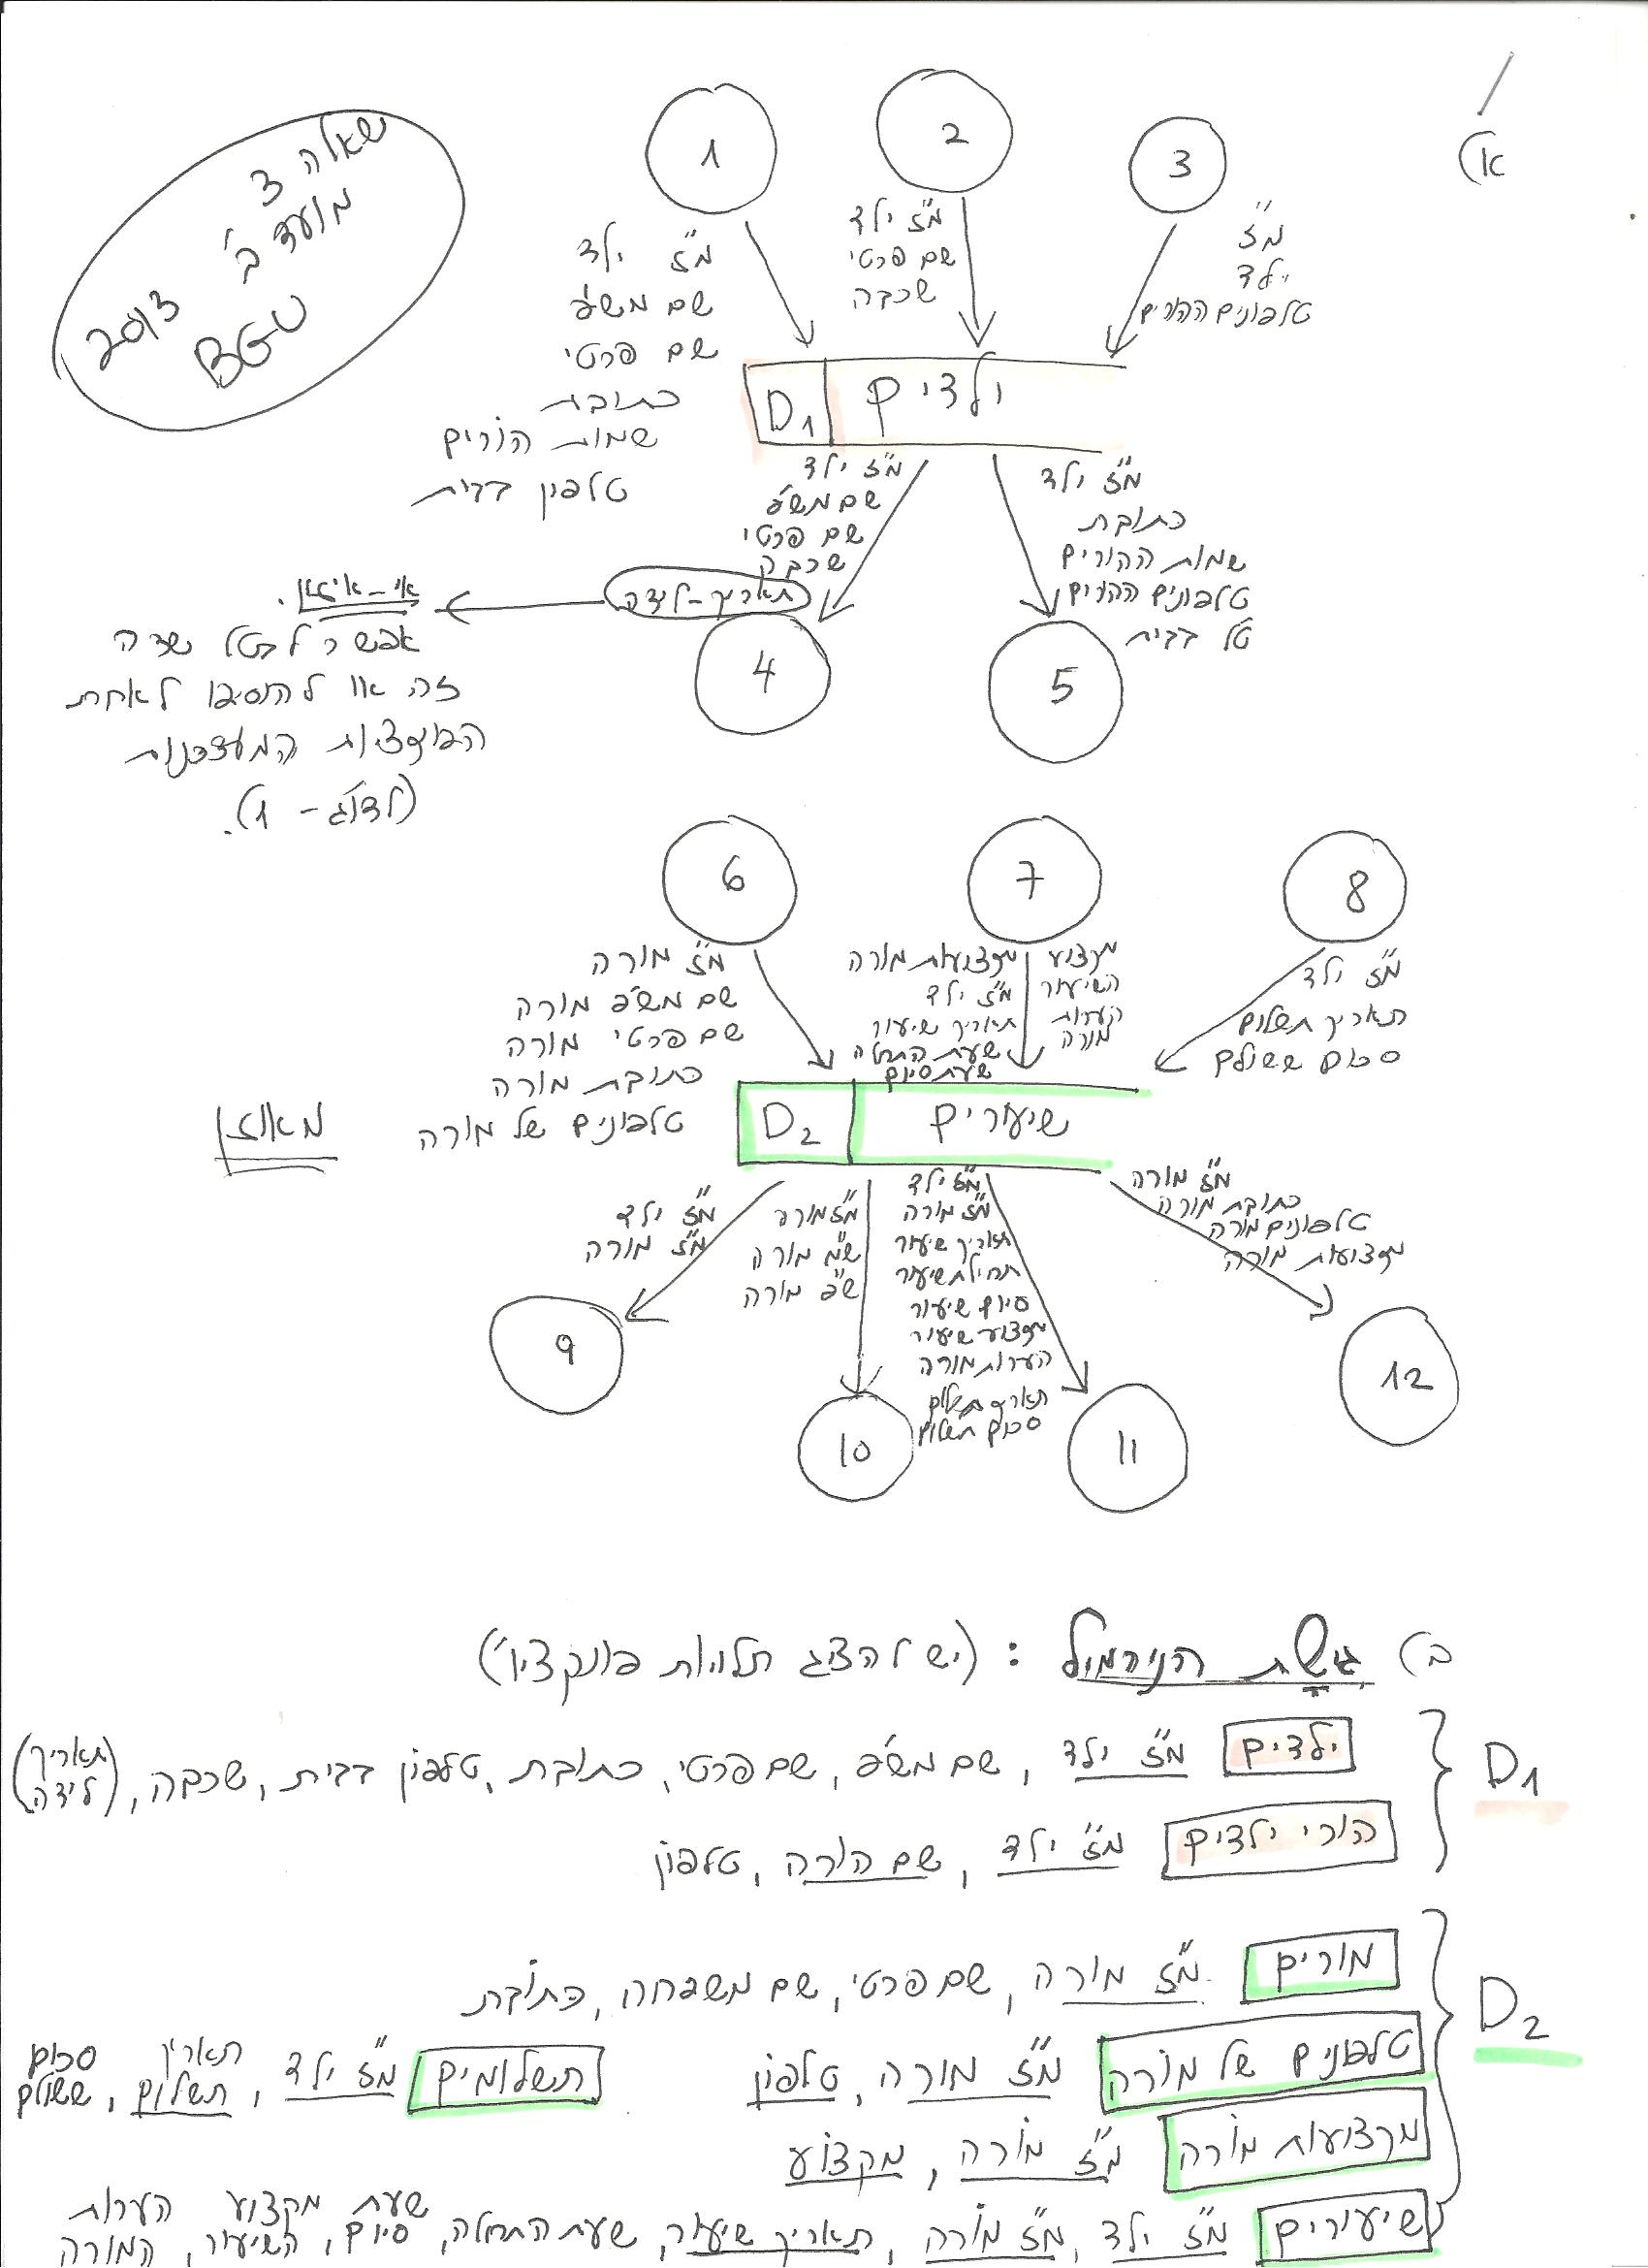 א)
שאלה 3
מועד ב'
2013
BGU
1
2
3
מ"ז ילד
שם משפ'
שם פרטי
כתובת
שמות הורים
טלפון בבית
מ"ז ילד
שם פרטי
שכבה
מ"ז
ילד
טלפונים ההורים
D1
ילדים
מ"ז ילד
שם משפ'
שם פרטי
שכבה
תאריך-לידה
מ"ז ילד
כתובת
שמות ההורים
טלפונים ההורים
טל' בבית
אי-איזון.
אפשר לבטל שדה
זה או להוסיפו לאחת
הפונקציות המעדכנות
(לדוג' - 1).
4
5
6
7
8
מ"ז מורה
שם משפ' מורה
שם פרטי מורה
כתובת מורה
טלפונים של מורה
מקצועות מורה
מ"ז ילד
תאריך שיעור
שעת התחלה
שעת סיום
מקצוע
השיעור
הערות
מורה
מ"ז ילד
תאריך תשלום
סכום ששולם
D2
שיעורים
מאוזן
מ"ז ילד
מ"ז מורה
מ"ז מורה
ש"מ מורה
ש"פ מורה
מ"ז ילד
מ"ז מורה
תאריך שיעור
תחילת שיעור
סיום שיעור
מקצוע שיעור
הערות מורה
תאריך תשלום
סכום תשלום
מ"ז מורה
כתובת מורה
טלפונים מורה
מקצועות מורה
9
10
11
12
ב) גישת הנירמול : (יש להציג תלויות פונקציו')
D1
ילדים מ"ז ילד, שם משפ', שם פרטי, כתובת, טלפון בבית, שכבה, (תאריך לידה)
הורי ילדים מ"ז ילד, שם הורה, טלפון
D2
מורים מ"ז מורה, שם פרטי, שם משפחה, כתובת
טלפונים של מורה מ"ז מורה, טלפון
תשלומים מ"ז ילד, תאריך תשלום, סכום ששולם
מקצועות מורה מ"ז מורה, מקצוע
שיעורים מ"ז ילד, מ"ז מורה, תאריך שיעור, שעת התחלה, שעת סיום, מקצוע השיעור, הערות המורה